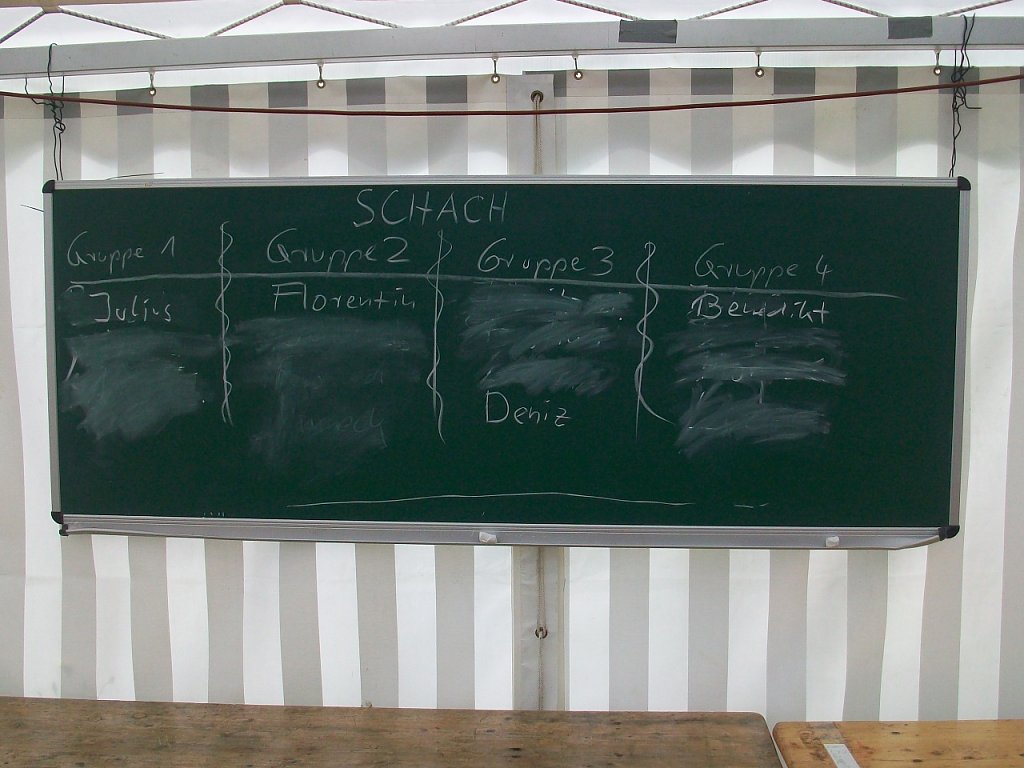 SCHACH
Gruppe 1 Gruppe 2 Gruppe 3 Gruppe 4
Julius Florentin Benedikt
Deniz